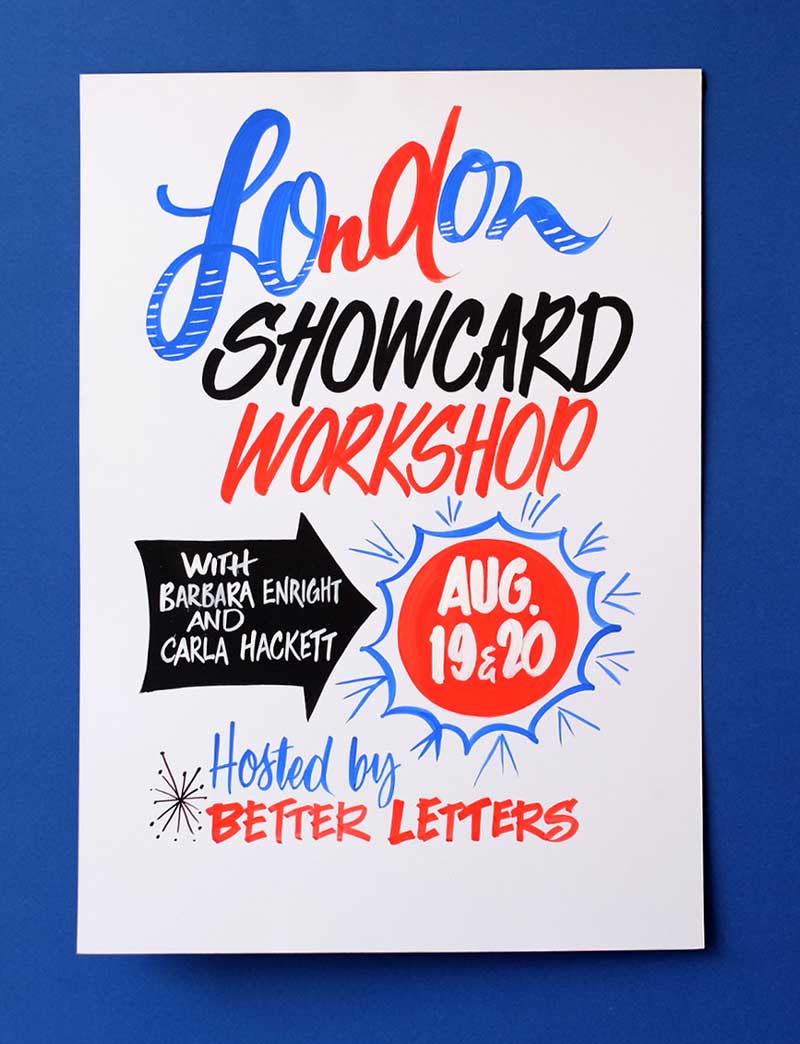 London
SHOWCARD
WORKSHOP
WITH
BARBARA ENRIGHT
AND
CARLA HACKETT
AUG.
19 & 20
Hosted by
BETTER LETTERS